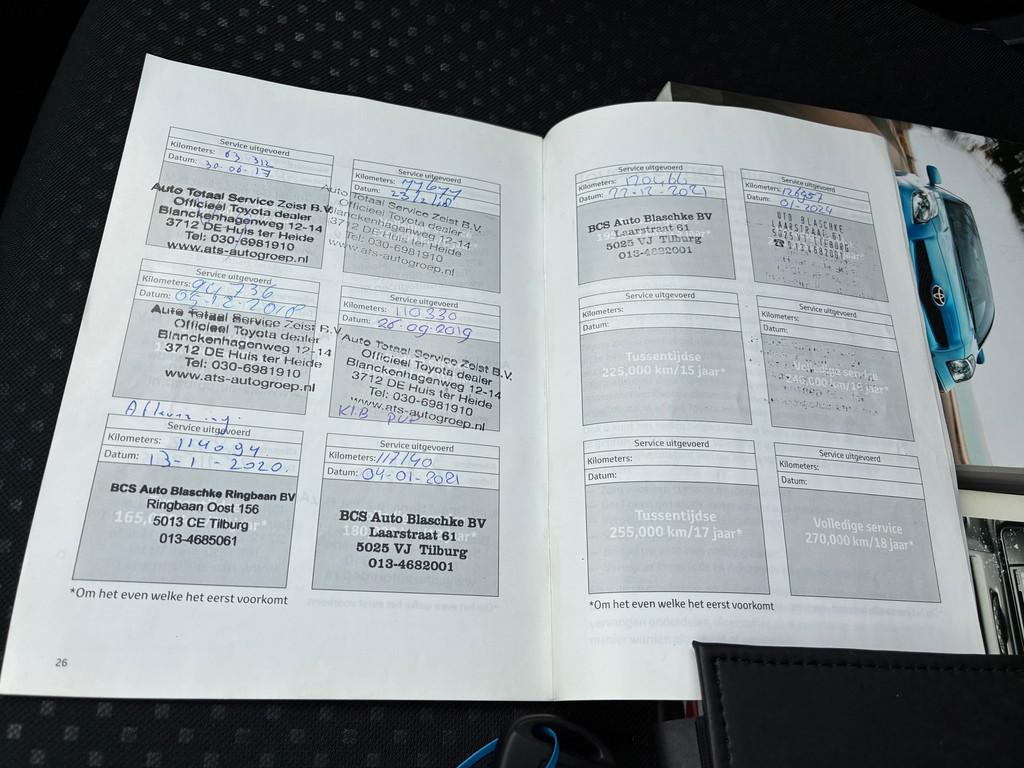 Service uitgevoerd
Kilometers: 63 312
Datum: 30-06-17
Auto Totaal Service Zeist B.V.
Officieel Toyota dealer
Blanckenhagenweg 12-14
3712 DE Huis ter Heide
Tel: 030-6981910
www.ats-autogroep.nl
Service uitgevoerd
Kilometers: 77677
Datum: 23/2/18
Auto Totaal Service Zeist B.V.
Officieel Toyota dealer
Blanckenhagenweg 12-14
3712 DE Huis ter Heide
Tel: 030-6981910
www.ats-autogroep.nl
Service uitgevoerd
Kilometers: 94736
Datum: 05-12-2018
Auto Totaal Service Zeist B.V.
Officieel Toyota dealer
Blanckenhagenweg 12-14
3712 DE Huis ter Heide
Tel: 030-6981910
www.ats-autogroep.nl
Service uitgevoerd
Kilometers: 110330
Datum: 26-09-2019
Auto Totaal Service Zeist B.V.
Officieel Toyota dealer
Blanckenhagenweg 12-14
3712 DE Huis ter Heide
Tel: 030-6981910
www.ats-autogroep.nl
Service uitgevoerd
Kilometers: 114094
Datum: 13-1-2020.
BCS Auto Blaschke Ringbaan BV
Ringbaan Oost 156
5013 CE Tilburg
013-4685061
Service uitgevoerd
Kilometers: 117140
Datum: 04-01-2021
BCS Auto Blaschke BV
Laarstraat 61
5025 VJ Tilburg
013-4682001
*Om het even welke het eerst voorkomt
26
Service uitgevoerd
Kilometers:
Datum: 2021
BCS Auto Blaschke BV
Laarstraat 61
5025 VJ Tilburg
013-4682001
Service uitgevoerd
Kilometers:
Datum: 01-2024
UTO BLASCHKE
LAARSTRAAT 61
5025 VJ TILBURG
☎013-4682001
Service uitgevoerd
Kilometers:
Datum:
Tussentijdse
225,000 km/15 jaar*
Service uitgevoerd
Kilometers:
Datum:
Volledige service
240,000 km/16 jaar*
Service uitgevoerd
Kilometers:
Datum:
Tussentijdse
255,000 km/17 jaar*
Service uitgevoerd
Kilometers:
Datum:
Volledige service
270,000 km/18 jaar*
*Om het even welke het eerst voorkomt